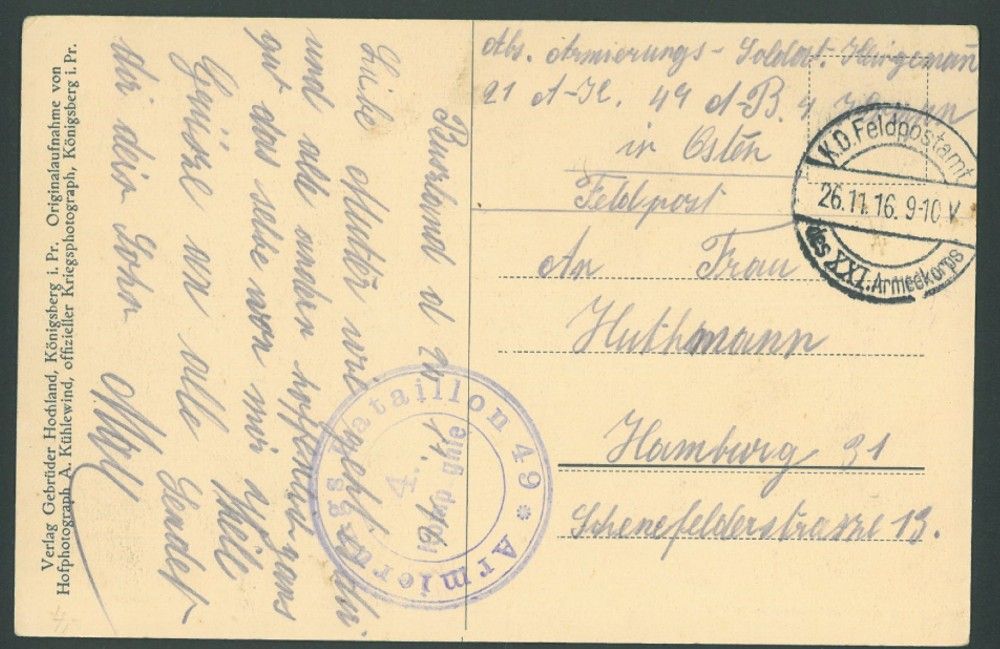 Abs. Armierungs-Soldat.
21 A-K. 49 A-B. 4
in Osten
Feldpost
An Frau
Huthmann
Hamburg 31
Schenefelderstrasze 13.
K.D.Feldpostamt
26.11.16. 9-10 V.
des XXI. Armeekorps
Russland d
Liebe Mutter wie geht es dir
und alle andern hoffendlich ganz
gut das selbe von mir
Grüsze an alle Sendet
dir dein Sohn
Armierungsbataillon 49
4.
Verlag Gebrüder Hochland, Königsberg i. Pr. Originalaufnahme von
Hofphotograph A. Kühlewind, offizieller Kriegsphotograph, Königsberg i. Pr.